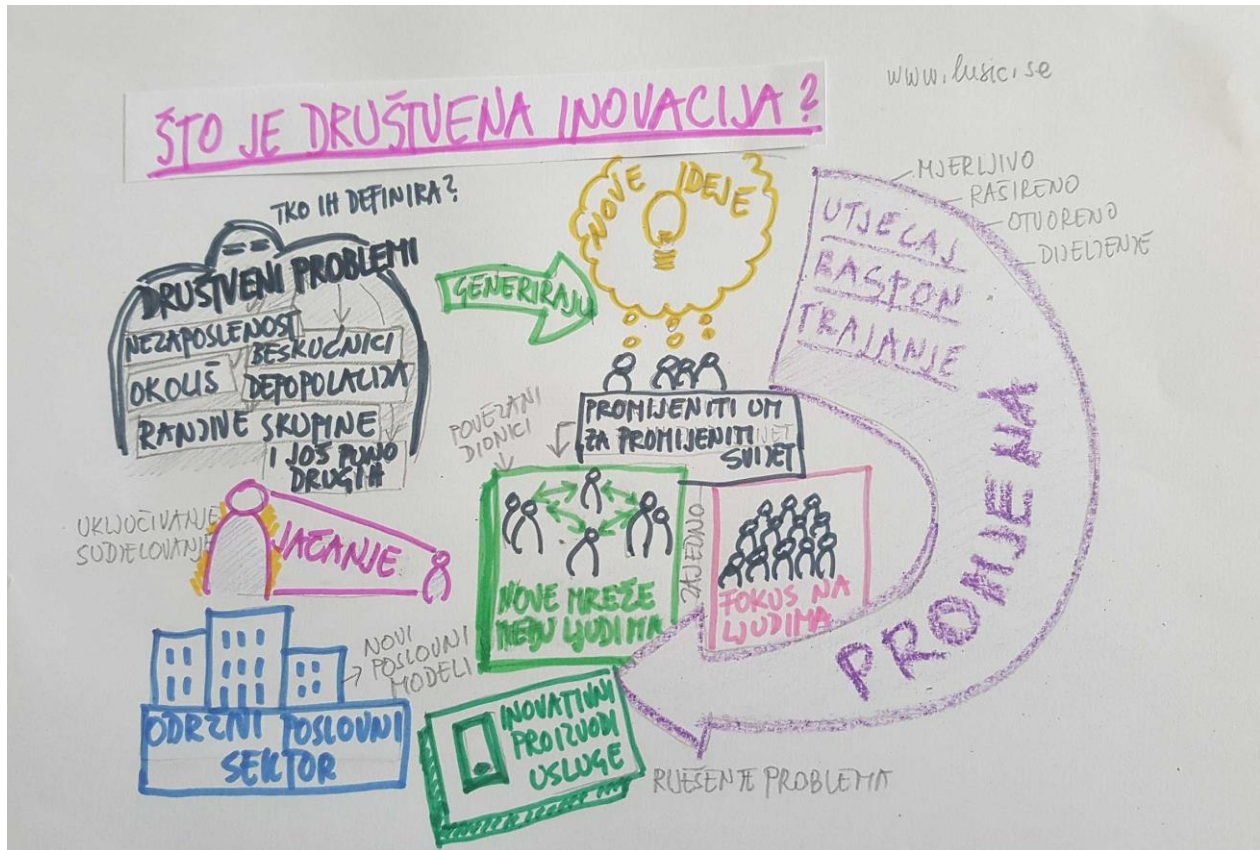 www.lusic.se
ŠTO JE DRUŠTVENA INOVACIJA?
TKO IH DEFINIRA?
DRUŠTVENI PROBLEMI
NEZAPOSLENOST
BESKUĆNICI
OKOLIŠ
DEPOPOLACIJA
RANJIVE SKUPINE
I JOŠ PUNO
DRUGIH
GENERIRAJU
NOVE IDEJE
MJERLJIVO
RAŠIRENO
OTVORENO
DIJELJENJE
UTJECAJ
RASPON
TRAJANJE
PROMJENA
PROMIJENITI UM
ZA PROMIJENITI
SVIJET
POVEZANI
DIONICI
UKLJUČIVANJE
SUDJELOVANJE
JAČANJE
NOVE MREŽE
MEĐU LJUDIMA
ZAJEDNO
FOKUS NA
LJUDIMA
NOVI
POSLOVNI
MODELI
ODRŽIVI POSLOVNI
SEKTOR
INOVATIVNI
PROIZVODI
USLUGE
RIJEŠENJE PROBLEMA